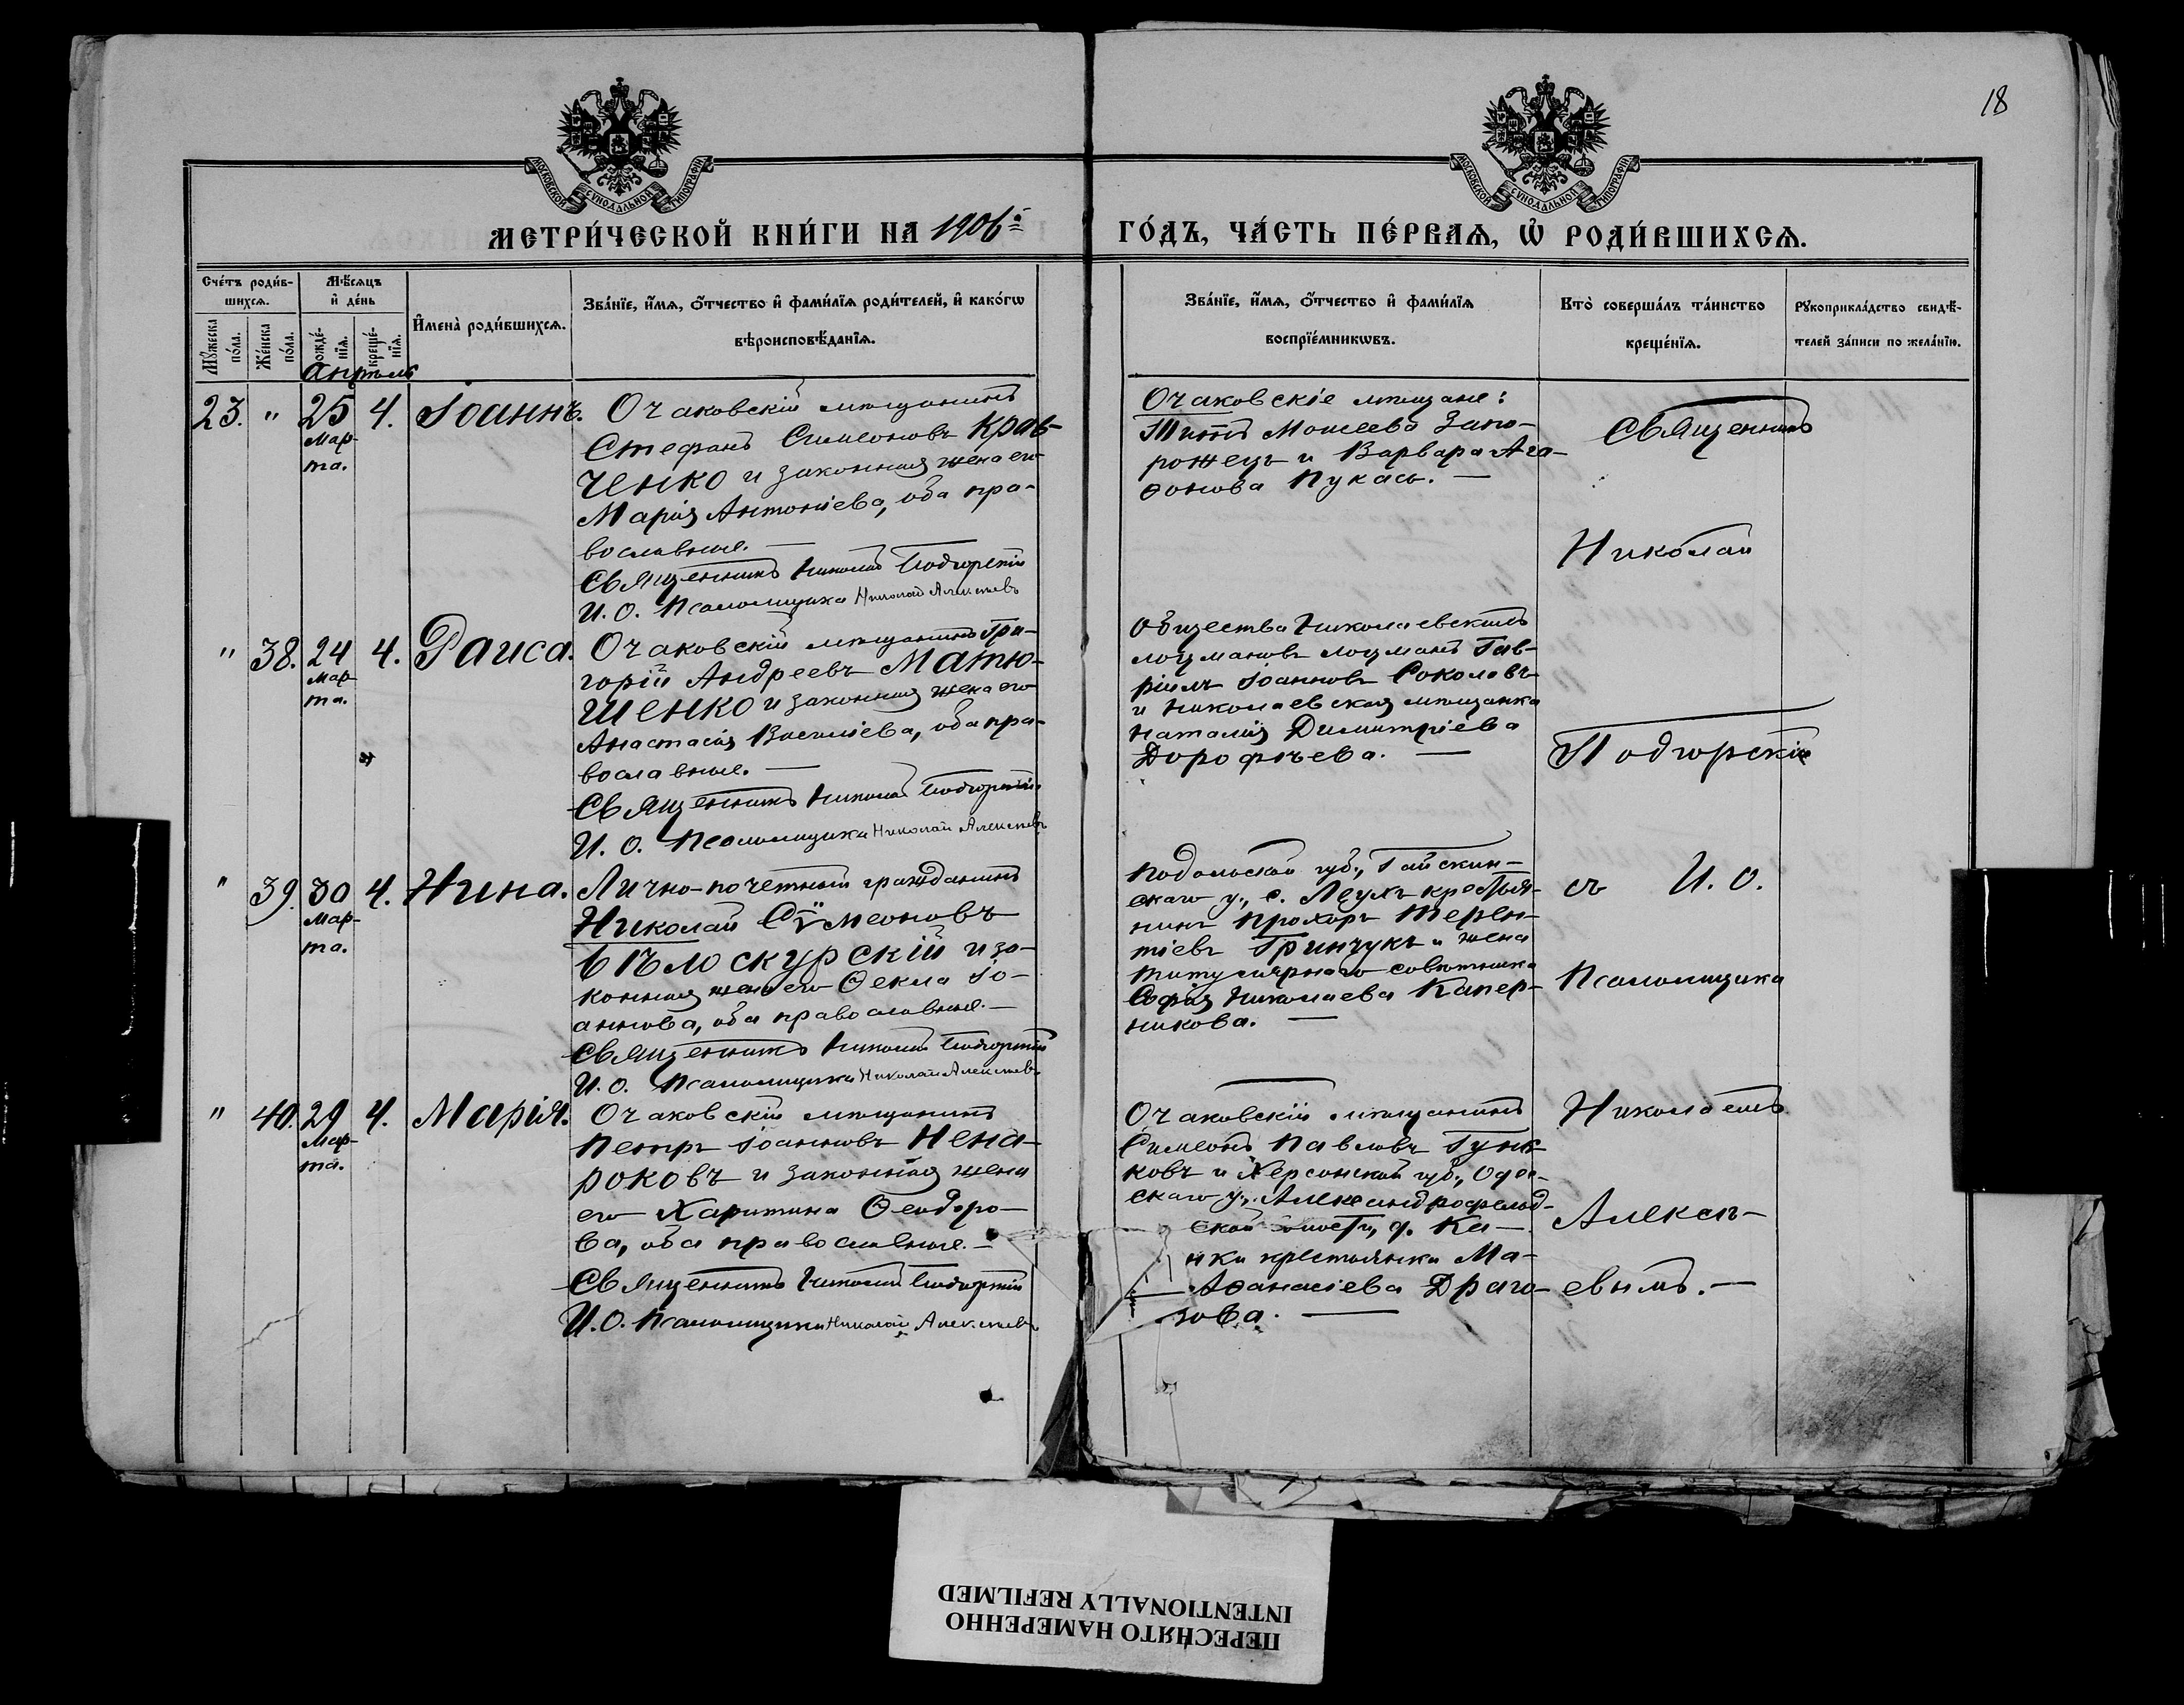 18
МОСКОВСКОЙ СѴНОДАЛЬНОЙ ТИПОГРАФІИ
МОСКОВСКОЙ СѴНОДАЛЬНОЙ ТИПОГРАФІИ
МЕТРИ́ЧЕСКОЙ КНИ́ГИ НА 1906й
ГО́ДЪ, ЧА́СТЬ ПЕ́РВАѦ, Ѡ҆ РОДИ́ВШИХСѦ.
Сче́тъ роди́в-
шихсѧ.
Мꙋ́жеска по́ла.
Же́нска по́ла.
Мѣ́сѧцъ
и҆ де́нь
рожде́-
нїѧ.
креще́-
нїѧ.
И҆мена̀ роди́вшихсѧ.
Зва́нїе, и҆́мѧ, ѻ҆́тчество и҆ фами́лїѧ роди́телей, и҆ како́гѡ
вѣроисповѣ́данїѧ.
Зва́нїе, и҆́мѧ, ѻ҆́тчество и҆ фами́лїѧ
воспрїе́мникѡвъ.
Кто̀ соверша́лъ та́инство
креще́нїѧ.
Рꙋкоприкла́дство свидѣ́-
телей за́писи по жела́нїю.
Апрѣль
23. " 25 4. Іоаннъ.
Мар-
та.
Очаковскій мѣщанинъ
Стефанъ Симеоновъ Крав-
ченко и законная жена его
Марія Антоніева, оба пра-
вославные. —
Священникъ Николай Подгорскій
И. О. Псаломщика Николай Алексѣевъ
Очаковскіе мѣщане:
Титъ Моисеевъ Запо-
рожецъ и Варвара Ага-
ѳонова Пукась. —
" 38. 24 4. Раиса.
Мар-
та.
Очаковскій мѣщанинъ Гри-
горій Андреевъ Матю-
шенко и законная жена его
Анастасія Василіева, оба пра-
вославные. —
Священникъ Николай Подгорскій
И. О. Псаломщика Николай Алексѣевъ
Общества Николаевскихъ
лоцмановъ лоцманъ Гав-
ріилъ Іоанновъ Соколовъ
и Николаевская мѣщанка
Наталія Димитріева
Дорофѣева. —
" 39. 30 4. Нина.
Мар-
та.
Лично-почетный гражданинъ
Николай Сѵмеоновъ
Бѣлоскурскій и за-
конная жена его Ѳекла Іо-
аннова, оба православные. —
Священникъ Николай Подгорскій
И. О. Псаломщика Николай Алексѣевъ
Подольской губ., Гайсин-
скаго у., с. крестья-
нинъ Прохоръ Терен-
тіевъ Гринчукъ и жена
титулярнаго совѣтника
Софія Николаева Капер-
никова. —
" 40. 29 4. Марія.
Мар-
та.
Очаковскій мѣщанинъ
Петръ Іоанновъ Нена-
роковъ и законная жена
его Харитина Ѳеодоро-
ва, оба православные. —
Священникъ Николай Подгорскій
И. О. Псаломщика Николай Алексѣевъ
Очаковскій мѣщанинъ
Симеонъ Павловъ
и Херсонской губ., Одес-
скаго у., Александрофельд-
ской волости, д.
крестьянка Ма-
Аѳанасіева Драго-
зова. —
Священникъ
Николай
Подгорскій
съ И. О.
Псаломщика
Николаемъ
Алексѣ-
евымъ. —
ПЕРЕСНЯТО НАМЕРЕННО
INTENTIONALLY REFILMED